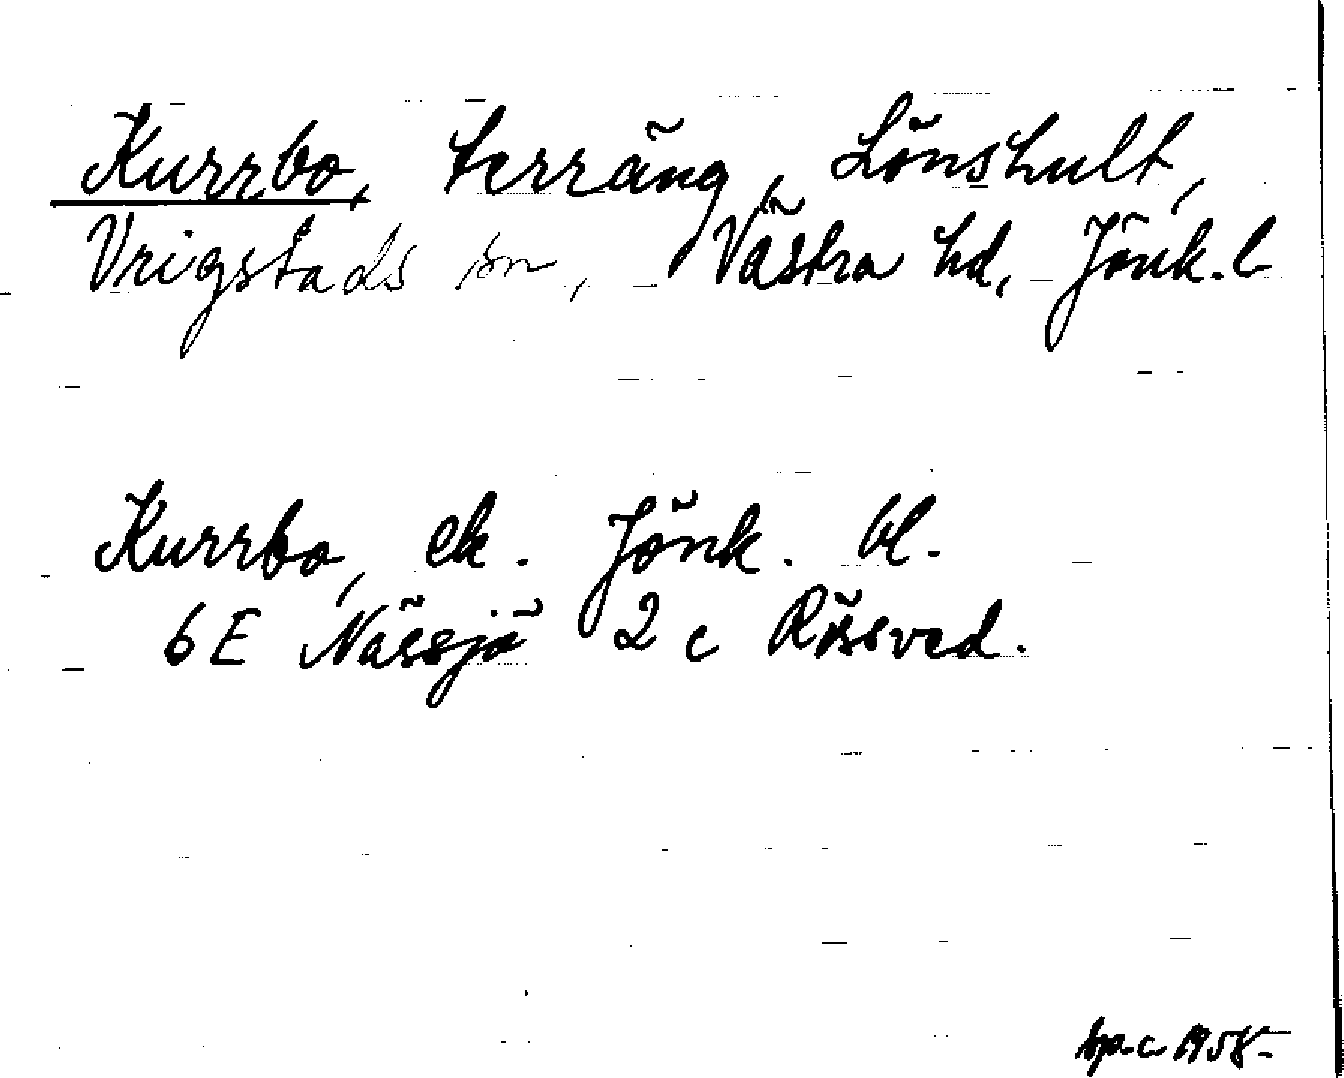 Kurrbo, terräng, Lönshult,
Vrigstads sn, Västra hd, Jönk.l
Kurrbo, ek. Jönk. bl.
6E Nässjö 2 c Rösved.